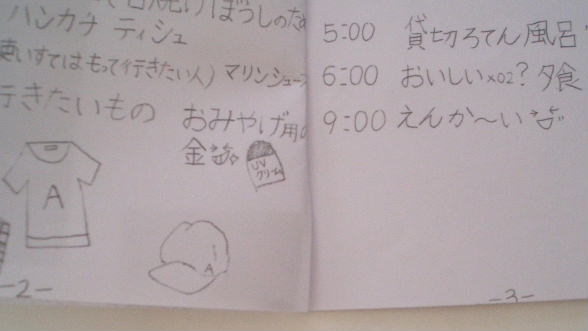 ぼうしのため
ハンカチ ティシュ
使いすてはもって行きたい人) マリンシューズ
行きたいもの おみやげ用の
金
UV
クリーム
A
A
-2-
5:00 貸切ろてん風呂
6:00 おいしい×02? 夕食
9:00 えんか〜い
-3-